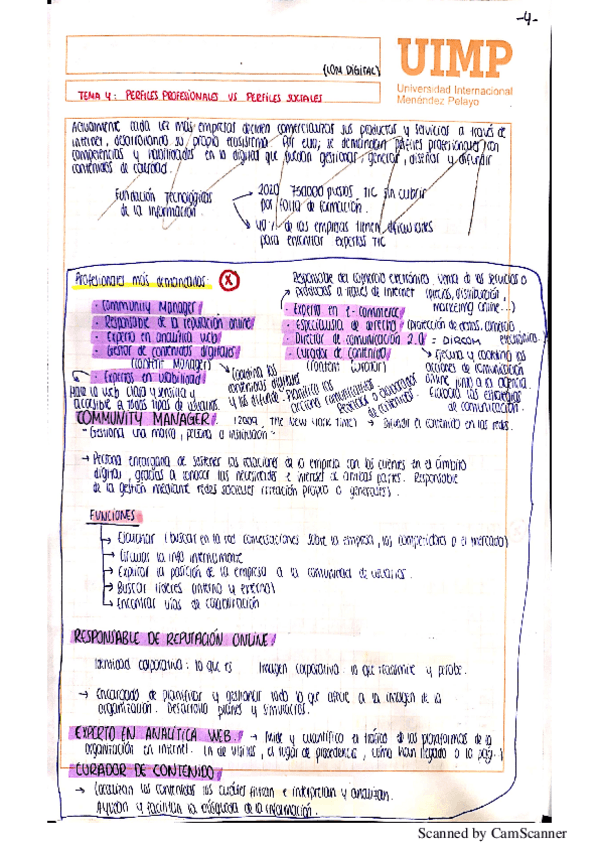 -4-
(COM DIGITAL)
UIMP
Universidad Internacional
Menéndez Pelayo
TEMA 4: PERFILES PROFESIONALES VS PERFILES SOCIALES
Actualmente cada vez más empresas deciden comercializar sus productos y servicios a través de
internet, desarrollando su propio ecosistema. Por ello, se demandan perfiles profesionales con
competencias y habilidades en lo digital que puedan gestionar, generar, diseñar y difundir
contenidos de calidad.
Fundación Tecnológicas
de la información
2020 750000 puestos TIC sin cubrir
por falta de formación.
40% de las empresas tienen dificultades
para encontrar expertos TIC
Profesionales más demandados:
X
Responsable del comercio electrónico, venta de los servicios o
productos a través de internet (precios, distribución,
marketing online...)
· Community Manager
· Responsable de la reputación online
· Experto en analítica web
· Gestor de contenidos digitales
(Content Manager)
· Expertos en usabilidad
· Experto en E-commerce
· Especialista de derecho (protección de datos, comercio
electrónico)
· Director de comunicación 2.0 = DIRCOM
· Curador de contenido
(Content Curator)
Ejecuta y coordina las
acciones de comunicación
online junto a la agencia.
Elabora las estrategias
de comunicación.
Coordina los
contenidos digitales
y los difunde. Planifica las
acciones comunicativas
Hace la web clara y sencilla y
accesible a todos tipos de usuarios.
COMMUNITY MANAGER (2009, The New York Time) → Difundir el contenido en las redes.
"Gestiona una marca, persona o institución"
→ Persona encargada de sostener las relaciones de la empresa con los clientes en el ámbito
digital, gracias a conocer las necesidades e interés de ambas partes. Responsable
de la gestión mediante redes sociales (creación propia o generales).
FUNCIONES
→ Escuchar (buscar en la red conversaciones sobre la empresa, los competidores o el mercado)
→ Circular la info internamente
→ Explicar la posición de la empresa a la comunidad de usuarios.
→ Buscar líderes (interno y externo)
→ Encontrar vías de colaboración
RESPONSABLE DE REPUTACIÓN ONLINE
Identidad corporativa: lo que es. Imagen corporativa: lo que transmite y percibe.
→ Encargado de planificar y gestionar todo lo que afecte a la imagen de la
organización. Desarrolla planes y simulacros.
EXPERTO EN ANALÍTICA WEB. → Mide y cuantifica el tráfico de las plataformas de la
organización en internet. (n de visitas, el lugar de procedencia, cómo han llegado a la pág.)
CURADOR DE CONTENIDO
→ Localizan los contenidos los cuales filtran e interpretan y analizan.
Ayudan y facilitan la búsqueda de la información.
Scanned by CamScanner